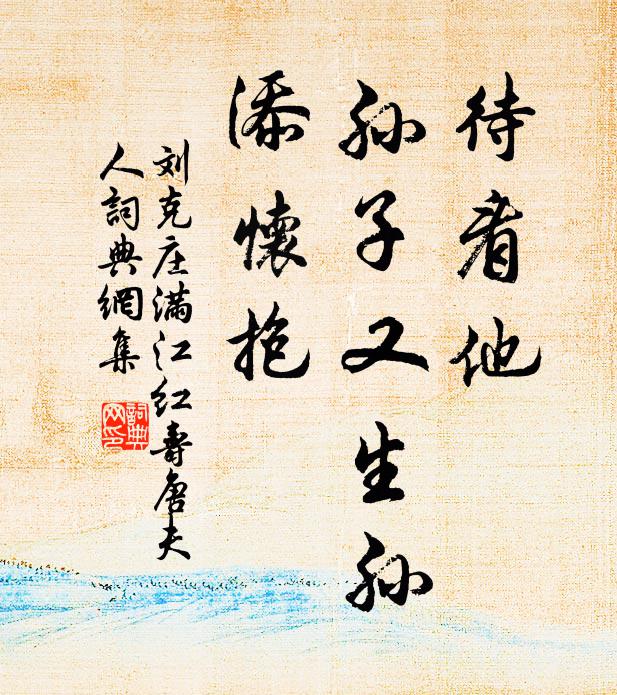 待看他
孙子又生孙
添懷抱
刘克庄满江红寿唐夫
人詞典網集
詞典
网印